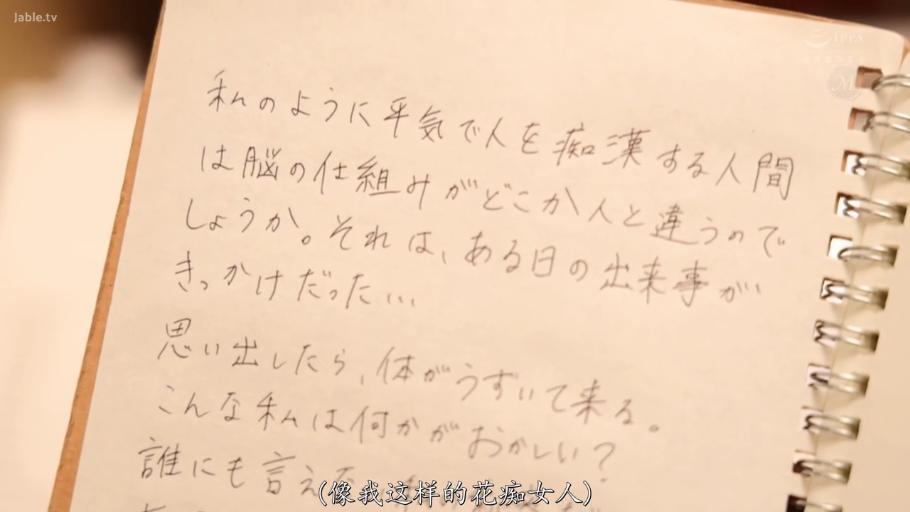 Jable.tv
私のように平気で人を痴漢する人間
は脳の仕組みがどこか人と違うので
しょうか。それは、ある日の出来事が
きっかけだった...
思い出したら、体がうずいて来る。
こんな私は何かがおかしい?
誰にも言え
(像我这样的花痴女人)